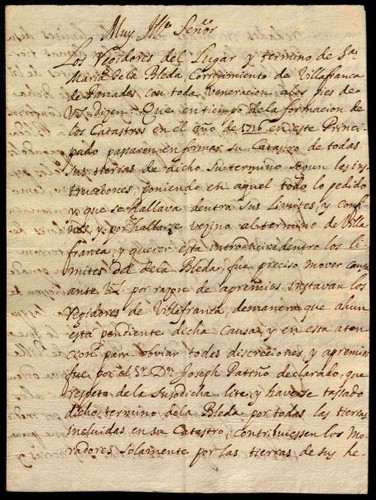 Muy Ill.e Señor
Los Regidores del Lugar y termino de Sa.
Maria de la Bleda, Corrimiento de Villafranca
de Panades con toda Veneracion alos pies de
V.S. dizen: Que en tiempo de la formacion de
los Catastros en el año de 1716 en este Princi
pado passaron en formar su Catastro de todas
sus tierras de dicho su termino segun las ins
trucciones poniendo en aquel todo lo pedido
y que se hallava dentro sus Limites y confi
nes, y por hallarse vezino al termino de Villa
franca, y querer esta introducirse dentro los li
mites del dela Bleda, fue preciso mover causa
ante V.S. por razon de apremios instavan los
Regidores de Villafranca, demanera que ahun
està pendiente dicha Causa, y en esta aten
cion para obviar todas discreciones, y apremios
fue por el S.r D.n Joseph Patiño declarado, que
respeto de la susodicha lite, y haverse tassado
dicho termino dela Bleda por todas las tierras
incluidas en su Catastro, contribuiessen los Mo
radores solamente por las tierras de sus he